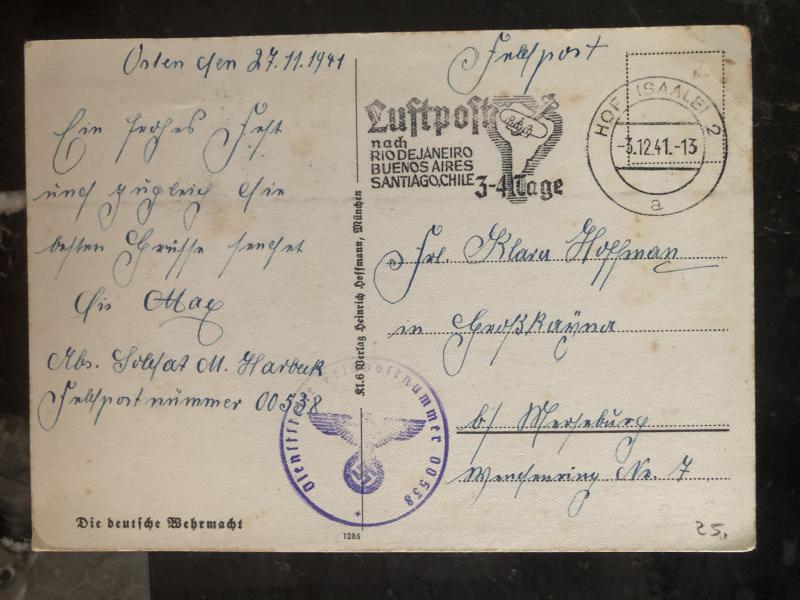 Osten den 27.11.1941
Ein frohes Fest
und zugleich die
besten Grüsse sendet
Dir Max
Abs. Soldat M. Harbeck
Feldpostnummer 00538
Die deutsche Wehrmacht
Kl.6 Verlag Heinrich Hoffmann, München
1285
Feldpost
Luftpost
nach
RIO DE JANEIRO
BUENOS AIRES
SANTIAGO,CHILE 3-4 Tage
HOF (SAALE) 2
-3.12.41.-13
a
Frl. Klara Hoffman
in Großkayna
b/ Merseburg
No. 7
Dienststelle Feldpostnummer 00538
25.